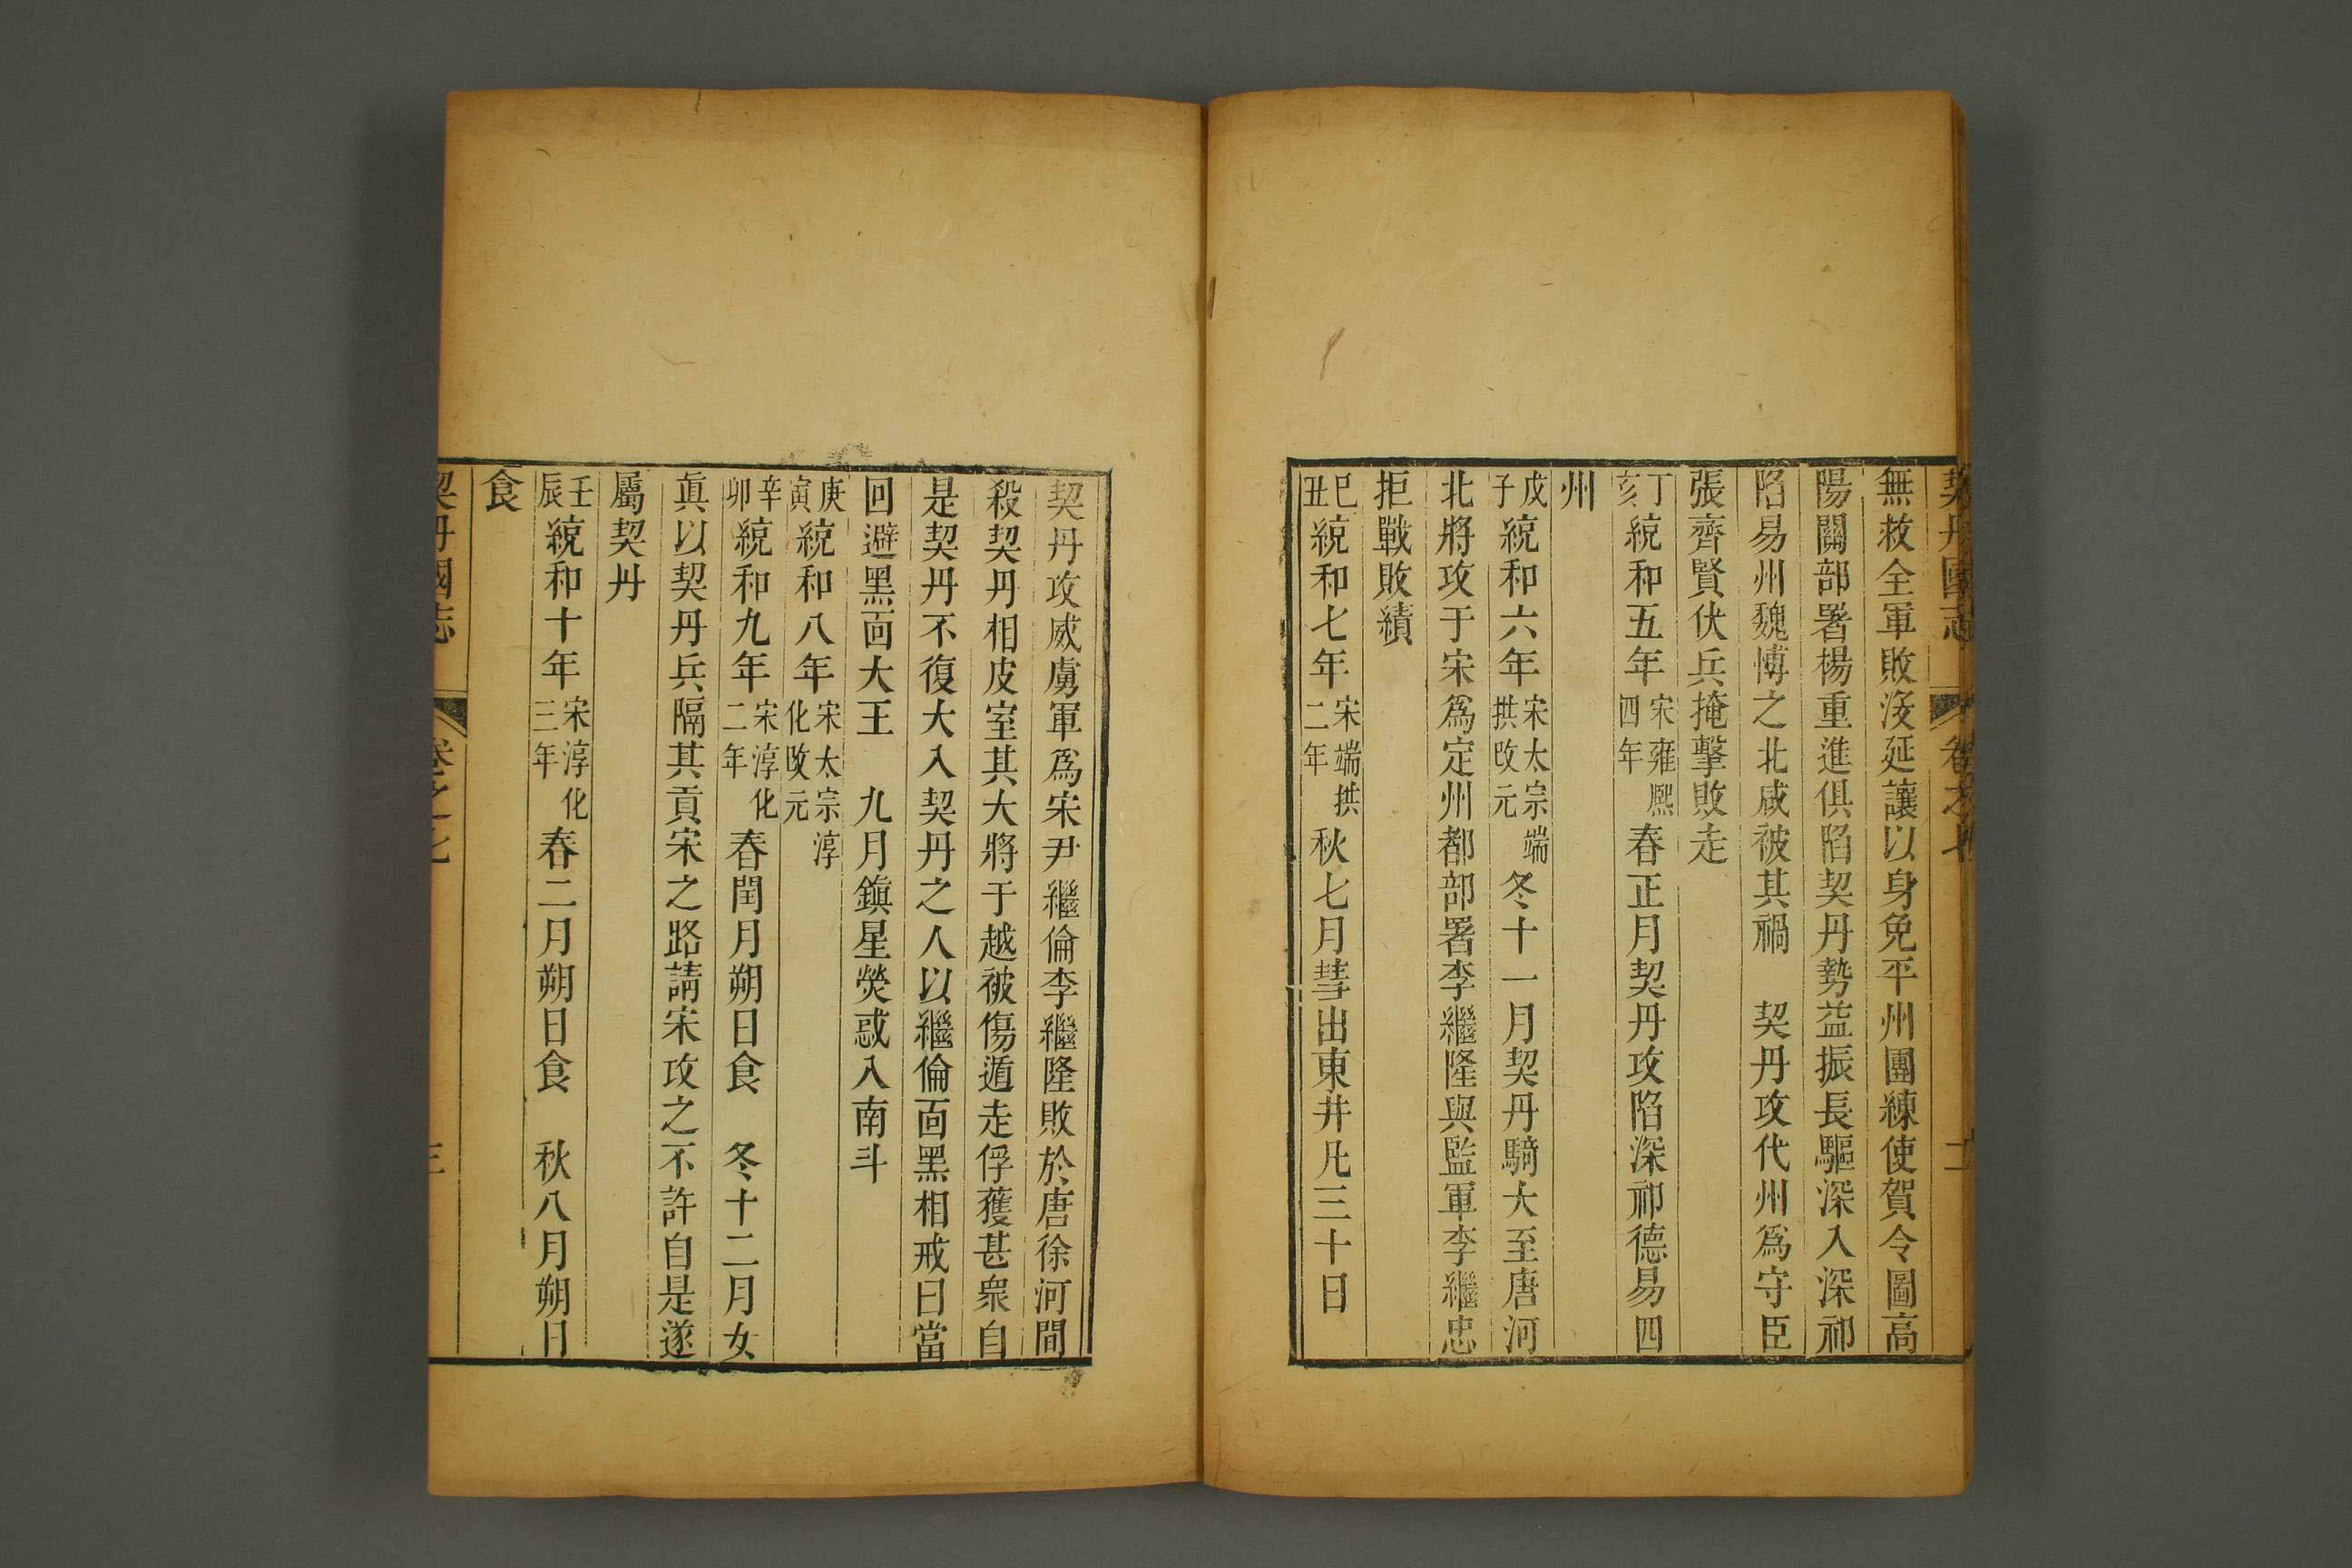 契丹國志 卷之七 二
無救全軍敗沒延讓以身免平州團練使賀令圖高
陽關部署楊重進俱陷契丹勢益振長驅深入深祁
陷易州魏博之北咸被其禍 契丹攻代州爲守臣
張齊賢伏兵掩擊敗走
丁亥統和五年宋雍熙四年春正月契丹攻陷深祁德易四
州
戊子統和六年宋太宗端拱改元冬十一月契丹騎大至唐河
北將攻于宋爲定州都部署李繼隆與監軍李繼忠
拒戰敗績
巳丑統和七年宋端拱二年秋七月彗出東井凡三十日
契丹攻威虜軍爲宋尹繼倫李繼隆敗於唐徐河間
殺契丹相皮室其大將于越被傷遁走俘獲甚衆自
是契丹不復大入契丹之人以繼倫面黑相戒曰當
回避黑面大王 九月鎭星熒惑入南斗
庚寅統和八年宋太宗淳化改元
辛卯統和九年宋淳化二年春閏月朔日食 冬十二月女
眞以契丹兵隔其貢宋之路請宋攻之不許自是遂
屬契丹
壬辰統和十年宋淳化三年春二月朔日食 秋八月朔日
食
契丹國志 卷之七 三